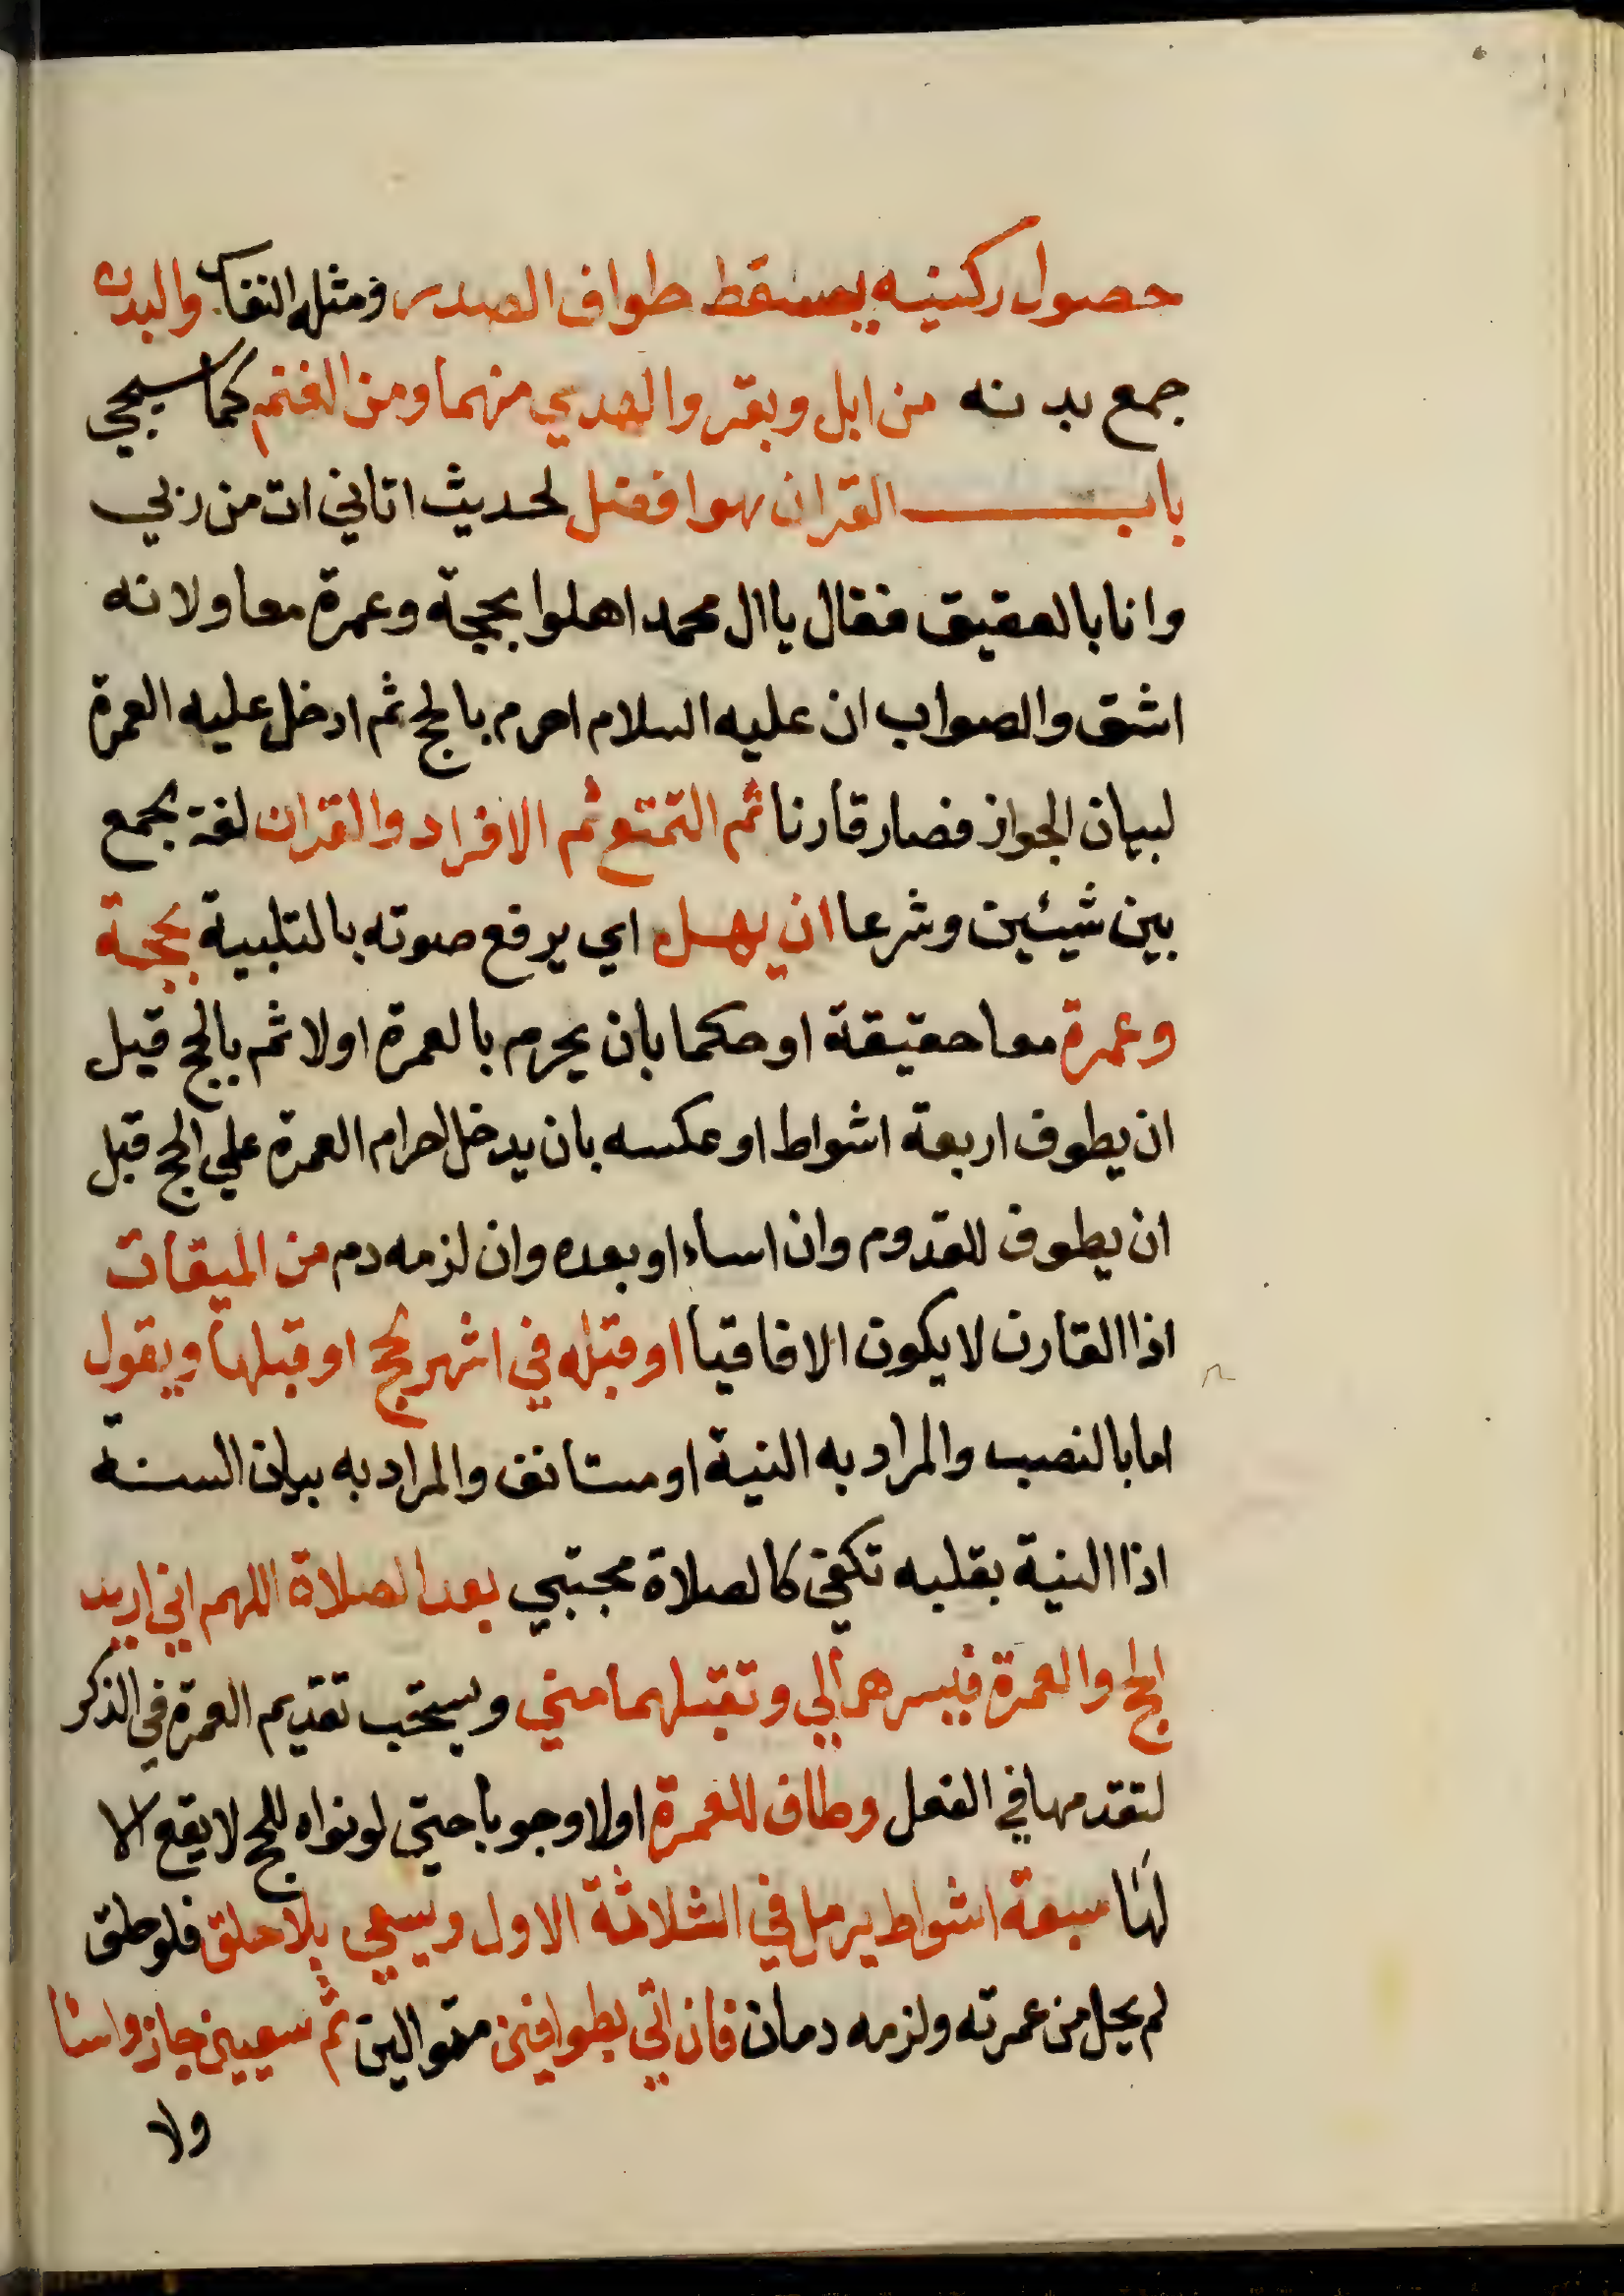 حصول ركنيه يسقط طواف الصدر ومثله النفاس والبدن
جمع بدنه من ابل وبقر والهدي منهما ومن الغنم كما سيجي
باب القران هو افضل لحديث اتاني ات من ربي
وانا بالعقيق فقال يا ال محمد اهلوا بحجة وعمرة معا ولانه
اشق والصواب ان عليه السلام احرم بالحج ثم ادخل عليه العمرة
لبيان الجواز فصار قارنا ثم التمتع ثم الافراد والقران لغة يجمع
بين شيئين وشرعا ان يهل اي يرفع صوته بالتلبية بحجة
وعمرة معا حقيقة او حكما بان يحرم بالعمرة اولا ثم بالحج قبل
ان يطوف اربعة اشواط او عكسه بان يدخل احرام العمرة علي الحج قبل
ان يطوف للقدوم وان اساء او بعده وان لزمه دم من الميقات
اذا القارن لا يكون الا فاقيا او قبله في اشهر الحج او قبلها ويقول
اما بالنصب والمراد به النية او مستانف والمراد به بيان السنة
اذا النية بقلبه تكفي كالصلاة مجتبي بعد الصلاة اللهم اني اريد
الحج والعمرة فيسرهما لي وتقبلهما مني ويستحب تقديم العمرة في الذكر
لتقدمها في الفعل وطاف للعمرة اولا وجوبا حتي لو نواه للحج لا يقع الا
لها سبعة اشواط يرمل في الثلاثة الاول ويسعي بلا حلق فلو حلق
لم يحل من عمرته ولزمه دمان فان اتي بطوافين متوالين ثم سعيين جاز واسا
ولا